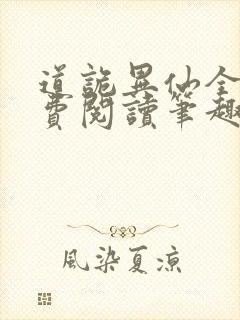 道詭異仙全
費閱讀筆趣
風染夏涼